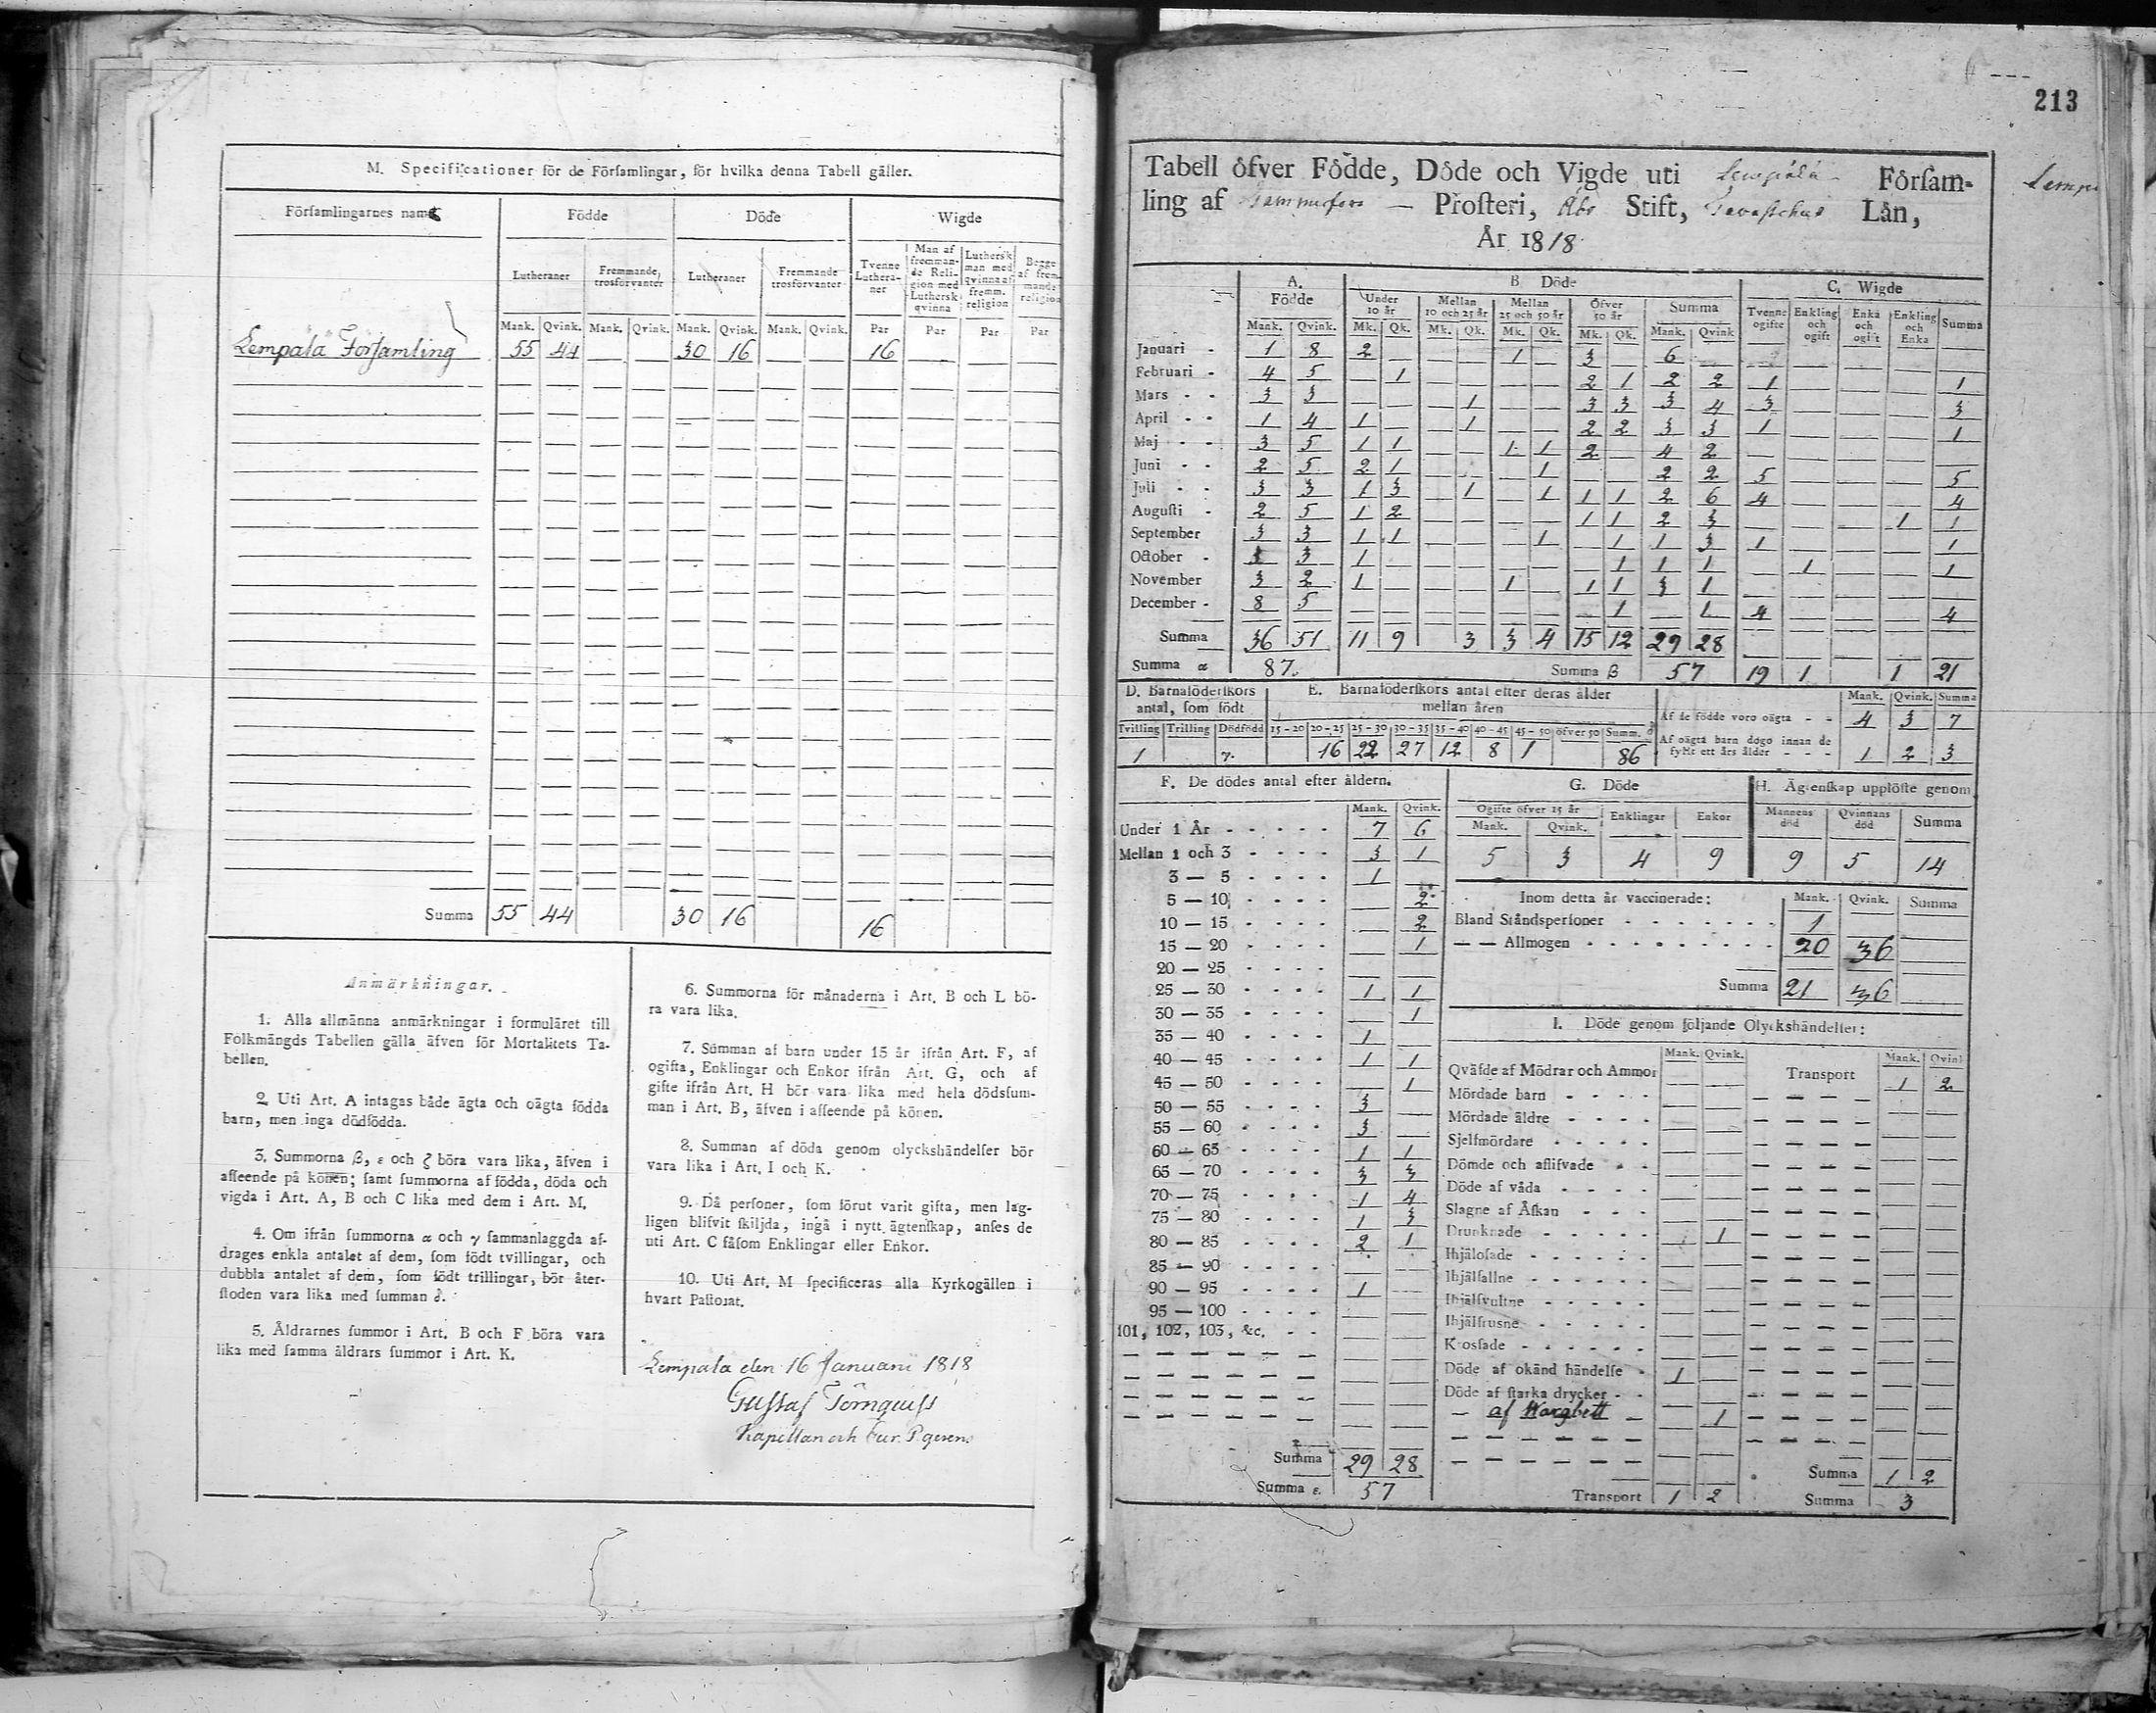 M. Specificationer för de Församlingar, för hvilka denna Tabell gäller.
Församlingarnes namn Födde Döde Wigde
Lutheraner Fremmande trosförvanter Lutheraner Fremmande trosförvanter Tvenne Lutheraner Man af fremmande Religion med Luthersk qvinna Luthersk man med qvinna af fremm. religion Begge af fremmande religion
Mank. Qvink. Mank. Qvink. Mank. Qvink. Mank. Qvink. Par Par Par Par
Lempala Församling 55 44 — — 30 16 — — 16 — — —
Summa 55 44 30 16 16
Anmärkningar.
1. Alla allmänna anmärkningar i formuläret till
Folkmängds Tabellen gälla äfven för Mortalitets Ta-
bellen.
2. Uti Art. A intagas både ägta och oägta födda
barn, men inga dödfödda.
3. Summorna β, ε och ζ böra vara lika, äfven i
afseende på könen; samt summorna af födda, döda och
vigda i Art. A, B och C lika med dem i Art. M.
4. Om ifrån summorna α och γ sammanlaggda af-
drages enkla antalet af dem, som födt tvillingar, och
dubbla antalet af dem, som födt trillingar, bör åter-
stoden vara lika med summan δ.
5. Åldrarnes summor i Art. B och F böra vara
lika med samma åldrars summor i Art. K.
6. Summorna för månaderna i Art. B och L bö-
ra vara lika.
7. Summan af barn under 15 år ifrån Art. F, af
ogifta, Enklingar och Enkor ifrån Art. G, och af
gifte ifrån Art. H bör vara lika med hela dödssum-
man i Art. B, äfven i afseende på könen.
8. Summan af döda genom olyckshändelser bör
vara lika i Art. I och K.
9. Då personer, som förut varit gifta, men lag-
ligen blifvit skiljda, ingå i nytt ägtenskap, anses de
uti Art. C såsom Enklingar eller Enkor.
10. Uti Art. M specificeras alla Kyrkogällen i
hvart Pastorat.
Lempala den 16 Januari 1818
Gustaf Törnquist
Kapellan och Cur. P. gerens
213
Tabell öfver Födde, Döde och Vigde uti Lempälä Församling
af Tammerfors Prosteri, Åbo Stift, Tavastehus Län,
År 1818
Lemp
A. Födde B. Döde C. Wigde
Under 10 år Mellan 10 och 25 år Mellan 25 och 50 år Öfver 50 år Summa Tvenne ogifte Enkling och ogift Enka och ogift Enkling och Enka Summa
Mank. Qvink. Mk. Qk. Mk. Qk. Mk. Qk. Mk. Qk. Mank. Qvink
Januari 1 8 2 — — — 1 — 3 — 6 —
Februari 4 5 — 1 — — — — 2 1 2 2 1 — — — 1
Mars 3 3 — — — 1 — — 3 3 3 4 3 — — — 3
April 1 4 1 — — 1 — — 2 2 3 3 1 — — — 1
Maj 3 5 1 1 — — 1 1 2 — 4 2 —
Juni 2 5 2 1 — — — 1 — — 2 2 5 — — — 5
Juli 3 3 1 3 — 1 — 1 1 1 2 6 4 — — — 4
Augusti 2 5 1 2 — — — — 1 1 2 3 — — — 1 1
September 3 3 1 1 — — — 1 — 1 1 3 1 — — — 1
October 3 3 1 — — — — — — 1 1 1 — 1 — — 1
November 3 2 1 — — — 1 — 1 1 3 1 —
December 8 5 — — — — — — — 1 — 1 4 — — — 4
Summa 36 51 11 9 3 3 4 15 12 29 28
Summa α 87. Summa β 57 19 1 1 21
D. Barnaföderskors antal, som födt E. Barnaföderskors antal efter deras ålder mellan åren Mank. Qvink. Summa
Tvilling Trilling Dödfödd 15–20 20–25 25–30 30–35 35–40 40–45 45–50 öfver 50 Summ. δ
1 γ. 16 22 27 12 8 1 86
Af de födde voro oägta 4 3 7
Af oägta barn dogo innan de fyllt ett års ålder 1 2 3
F. De dödes antal efter åldern.
Mank. Qvink.
Under 1 År 7 6
Mellan 1 och 3 3 1
3 — 5 1 —
5 — 10 — 2
10 — 15 — 2
15 — 20 — 1
20 — 25 — —
25 — 30 1 1
30 — 35 — 1
35 — 40 1 —
40 — 45 1 1
45 — 50 — 1
50 — 55 3 —
55 — 60 3 —
60 — 65 1 1
65 — 70 3 3
70 — 75 1 4
75 — 80 1 3
80 — 85 2 1
85 — 90 — —
90 — 95 1 —
95 — 100 — —
101, 102, 103, &c. — —
Summa 29 28
Summa ε. 57
G. Döde H. Ägtenskap upplöste genom
Ogifte öfver 15 år Enklingar Enkor Mannens död Qvinnans död Summa
Mank. Qvink.
5 3 4 9 9 5 14
Inom detta år vaccinerade: Mank. Qvink. Summa
Bland Ståndspersoner 1 —
— — Allmogen 20 36
Summa 21 36
I. Döde genom följande Olyckshändelser:
Mank. Qvink. Mank. Qvink
Qväfde af Mödrar och Ammor — — Transport 1 2
Mördade barn — —
Mördade äldre — —
Sjelfmördare — —
Dömde och aflifvade — —
Döde af våda — —
Slagne af Åskan — —
Drunknade — 1
Ihjälosade — —
Ihjälfallne — —
Ihjälsvultne — —
Ihjälfrusne — —
Krossade — —
Döde af okänd händelse 1 —
Döde af starka drycker — —
— af Wargbett — 1
Summa 1 2
Transport 1 2 Summa 3